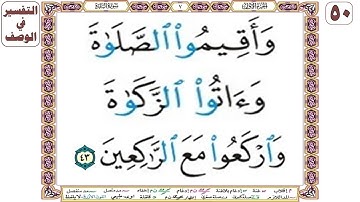 ٥٠
التفسير
في
الوصف
٧
وَأَقِيمُوا۟ ٱلصَّلَوٰةَ
وَءَاتُوا۟ ٱلزَّكَوٰةَ
وَٱرْكَعُوا۟ مَعَ ٱلرَّٰكِعِينَ ٤٣